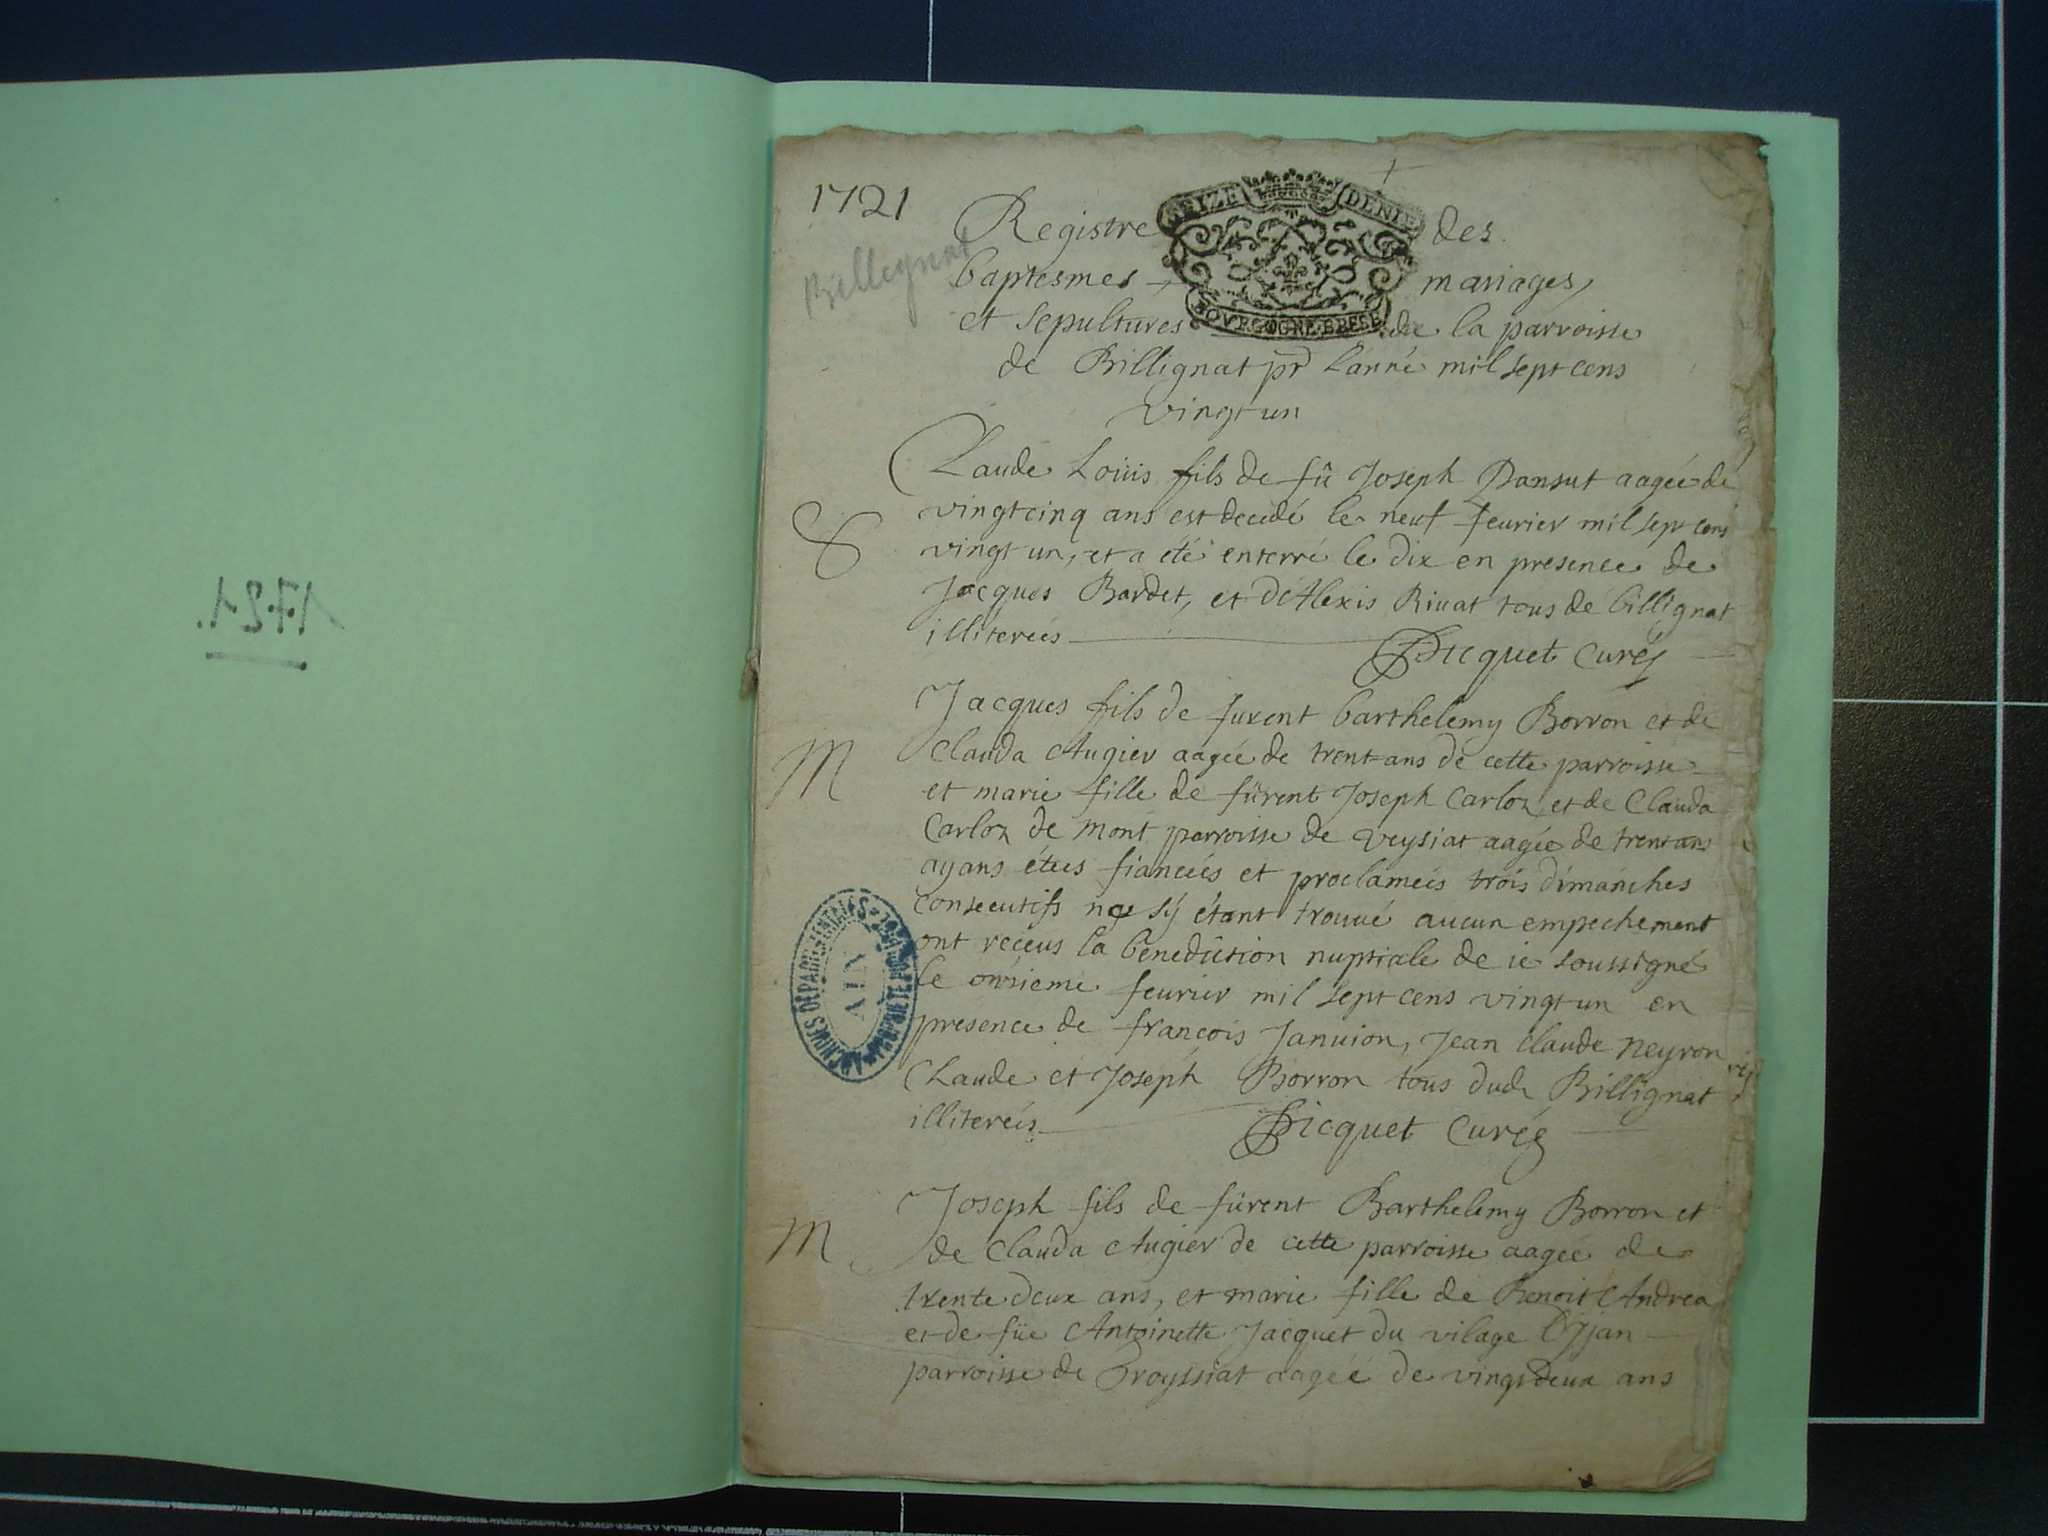 1721
Billegnat
Registre des
SEIZE DENIE
baptesmes mariages
et sepultures de la parroisse
BOVRGOGNE BRESE
de Billignat pr L'anné mil sept cens
vingt un
Claude Louis fils de fû Joseph Pansut aagée de
vingtcinq ans est decedé le neuf feurier mil sept cens
S
vingt un, et a été enterré le dix en presence de
Jacques Bardet, et d'Alexis Riuat tous de billignat
illiterées
Picquet Curé
Jacques fils de furent barthelemy Borron et de
M
Clauda Augier aagée de trent ans de cette parroisse
et marie fille de fûrent Joseph Carloz et de Clauda
Carloz de Mont parroisse de Veysiat aagée de trent ans
ayans étées fiancées et proclamées trois dimanches
consecutifs ne s'ÿ étant trouué aucun empechement
ont receus la benediction nuptiale de ie soussigné
le onzieme feurier mil sept cens vingt un en
presence de françois Januion, Jean Claude Neyron
Claude et Joseph Borron tous dud Billignat
illiterées
Picquet Curé
ARCHIVES DEPARTEMENTALES PROPRIETE PUBLIQUE
AIN
Joseph fils de fûrent Barthelemy Borron et
M
de Clauda Augier de cette parroisse aagée de
trente deux ans, et marie fille de Benoit Andrea
et de füe Antoinette Jacquet du vilage Oÿjan
parroisse de Groyssiat aagéé de vingt deux ans
1721.